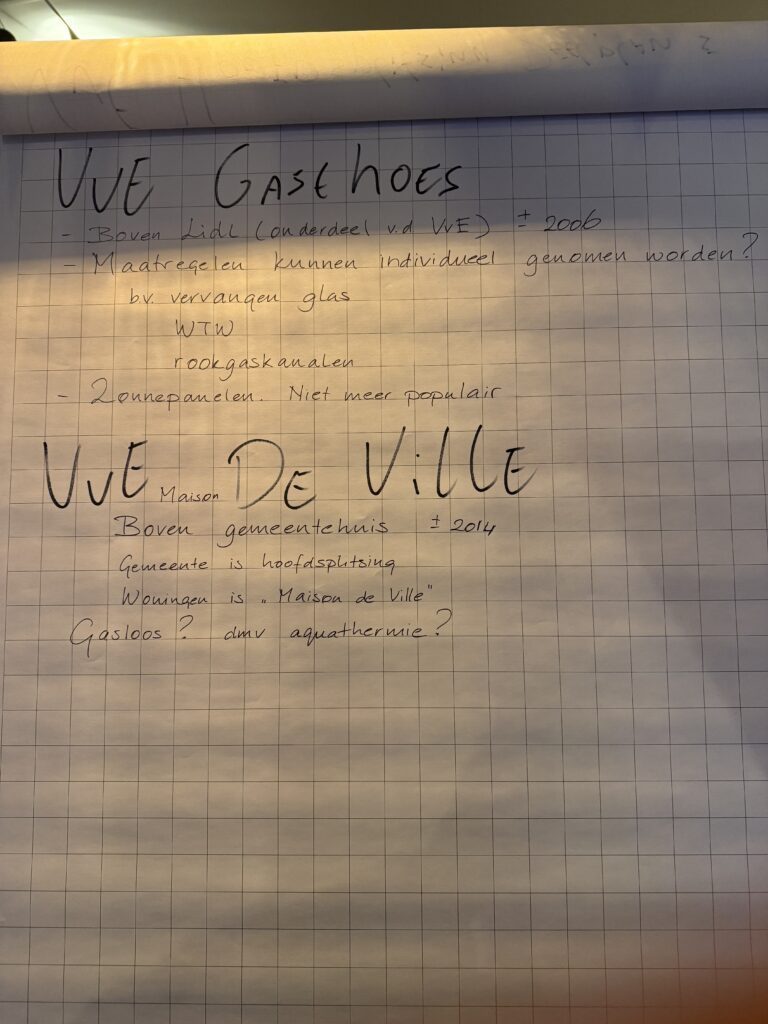 VVE GASTHOES
- Boven Lidl (onderdeel v.d VvE) ± 2006
- Maatregelen kunnen individueel genomen worden?
bv. vervangen glas
WTW
rookgaskanalen
- Zonnepanelen. Niet meer populair
VvE Maison DE VillE
Boven gemeentehuis ± 2014
Gemeente is hoofdsplitsing
Woningen is „Maison de Ville"
Gasloos? dmv aquathermie?